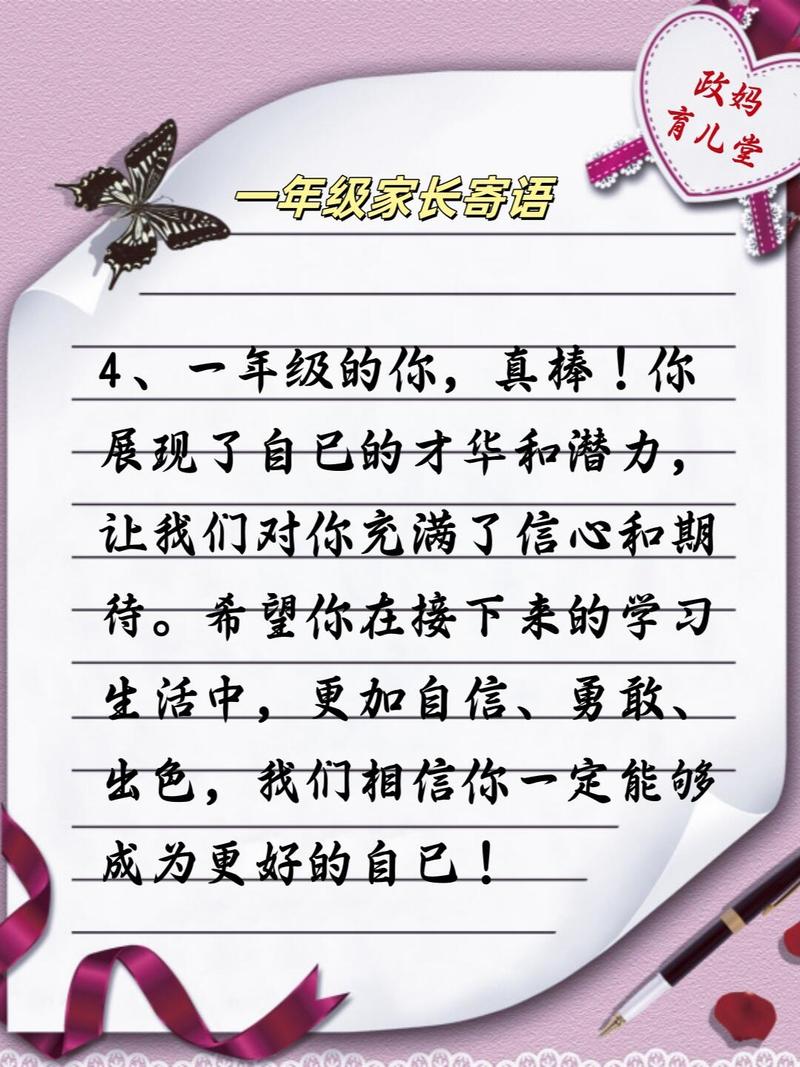 政妈
育儿堂
一年级家长寄语
4、一年级的你，真棒！你
展现了自己的才华和潜力，
让我们对你充满了信心和期
待。希望你在接下来的学习
生活中，更加自信、勇敢、
出色，我们相信你一定能够
成为更好的自己！